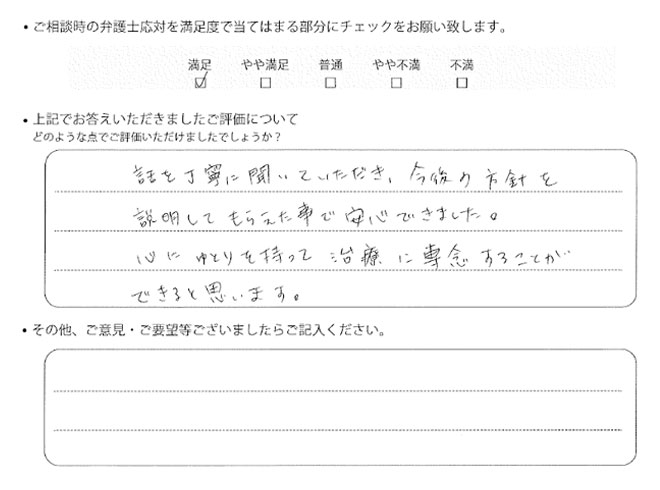 ・ご相談時の弁護士応対を満足度で当てはまる部分にチェックをお願い致します。
満足 やや満足 普通 やや不満 不満
・上記でお答えいただきましたご評価について
どのような点でご評価いただけましたでしょうか？
話を丁寧に聞いていただき、今後の方針を
説明してもらえた事で安心できました。
心にゆとりを持って治療に専念することが
できると思います。
・その他、ご意見・ご要望等ございましたらご記入ください。